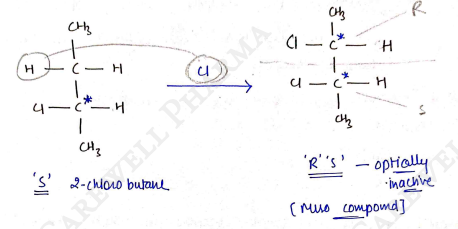 CH3
H — C — H
Cl — C* — H
CH3
'S' 2-chloro butane
Cl
CH3
R
Cl — C* — H
Cl — C* — H
S
CH3
'R' 'S' — optically
inactive
[Meso compound]
CAREWELL PHARMA